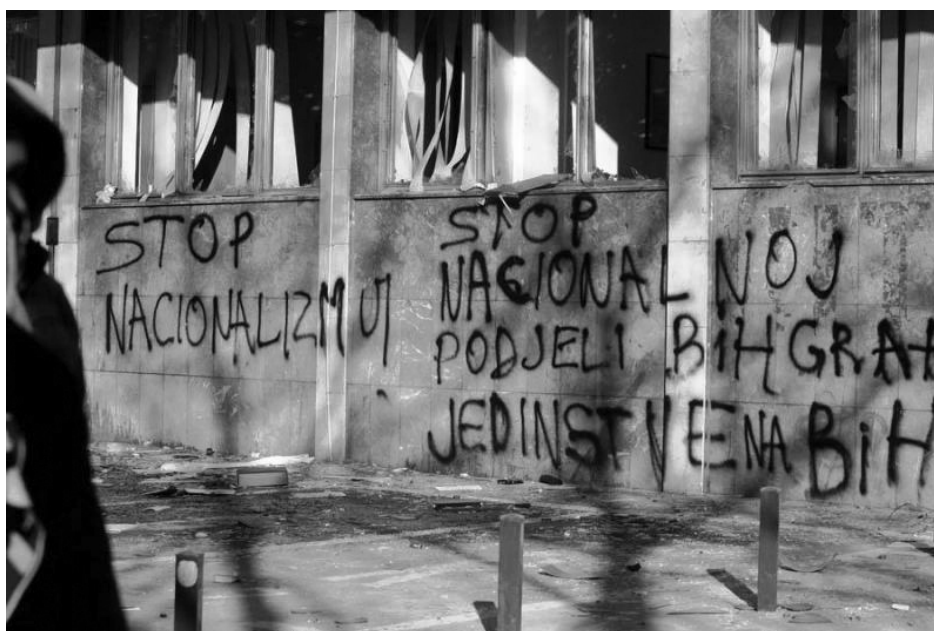 STOP
NACIONALIZMU
STOP
NACIONALNOJ
PODJELI BiH
JEDINSTVENA BiH